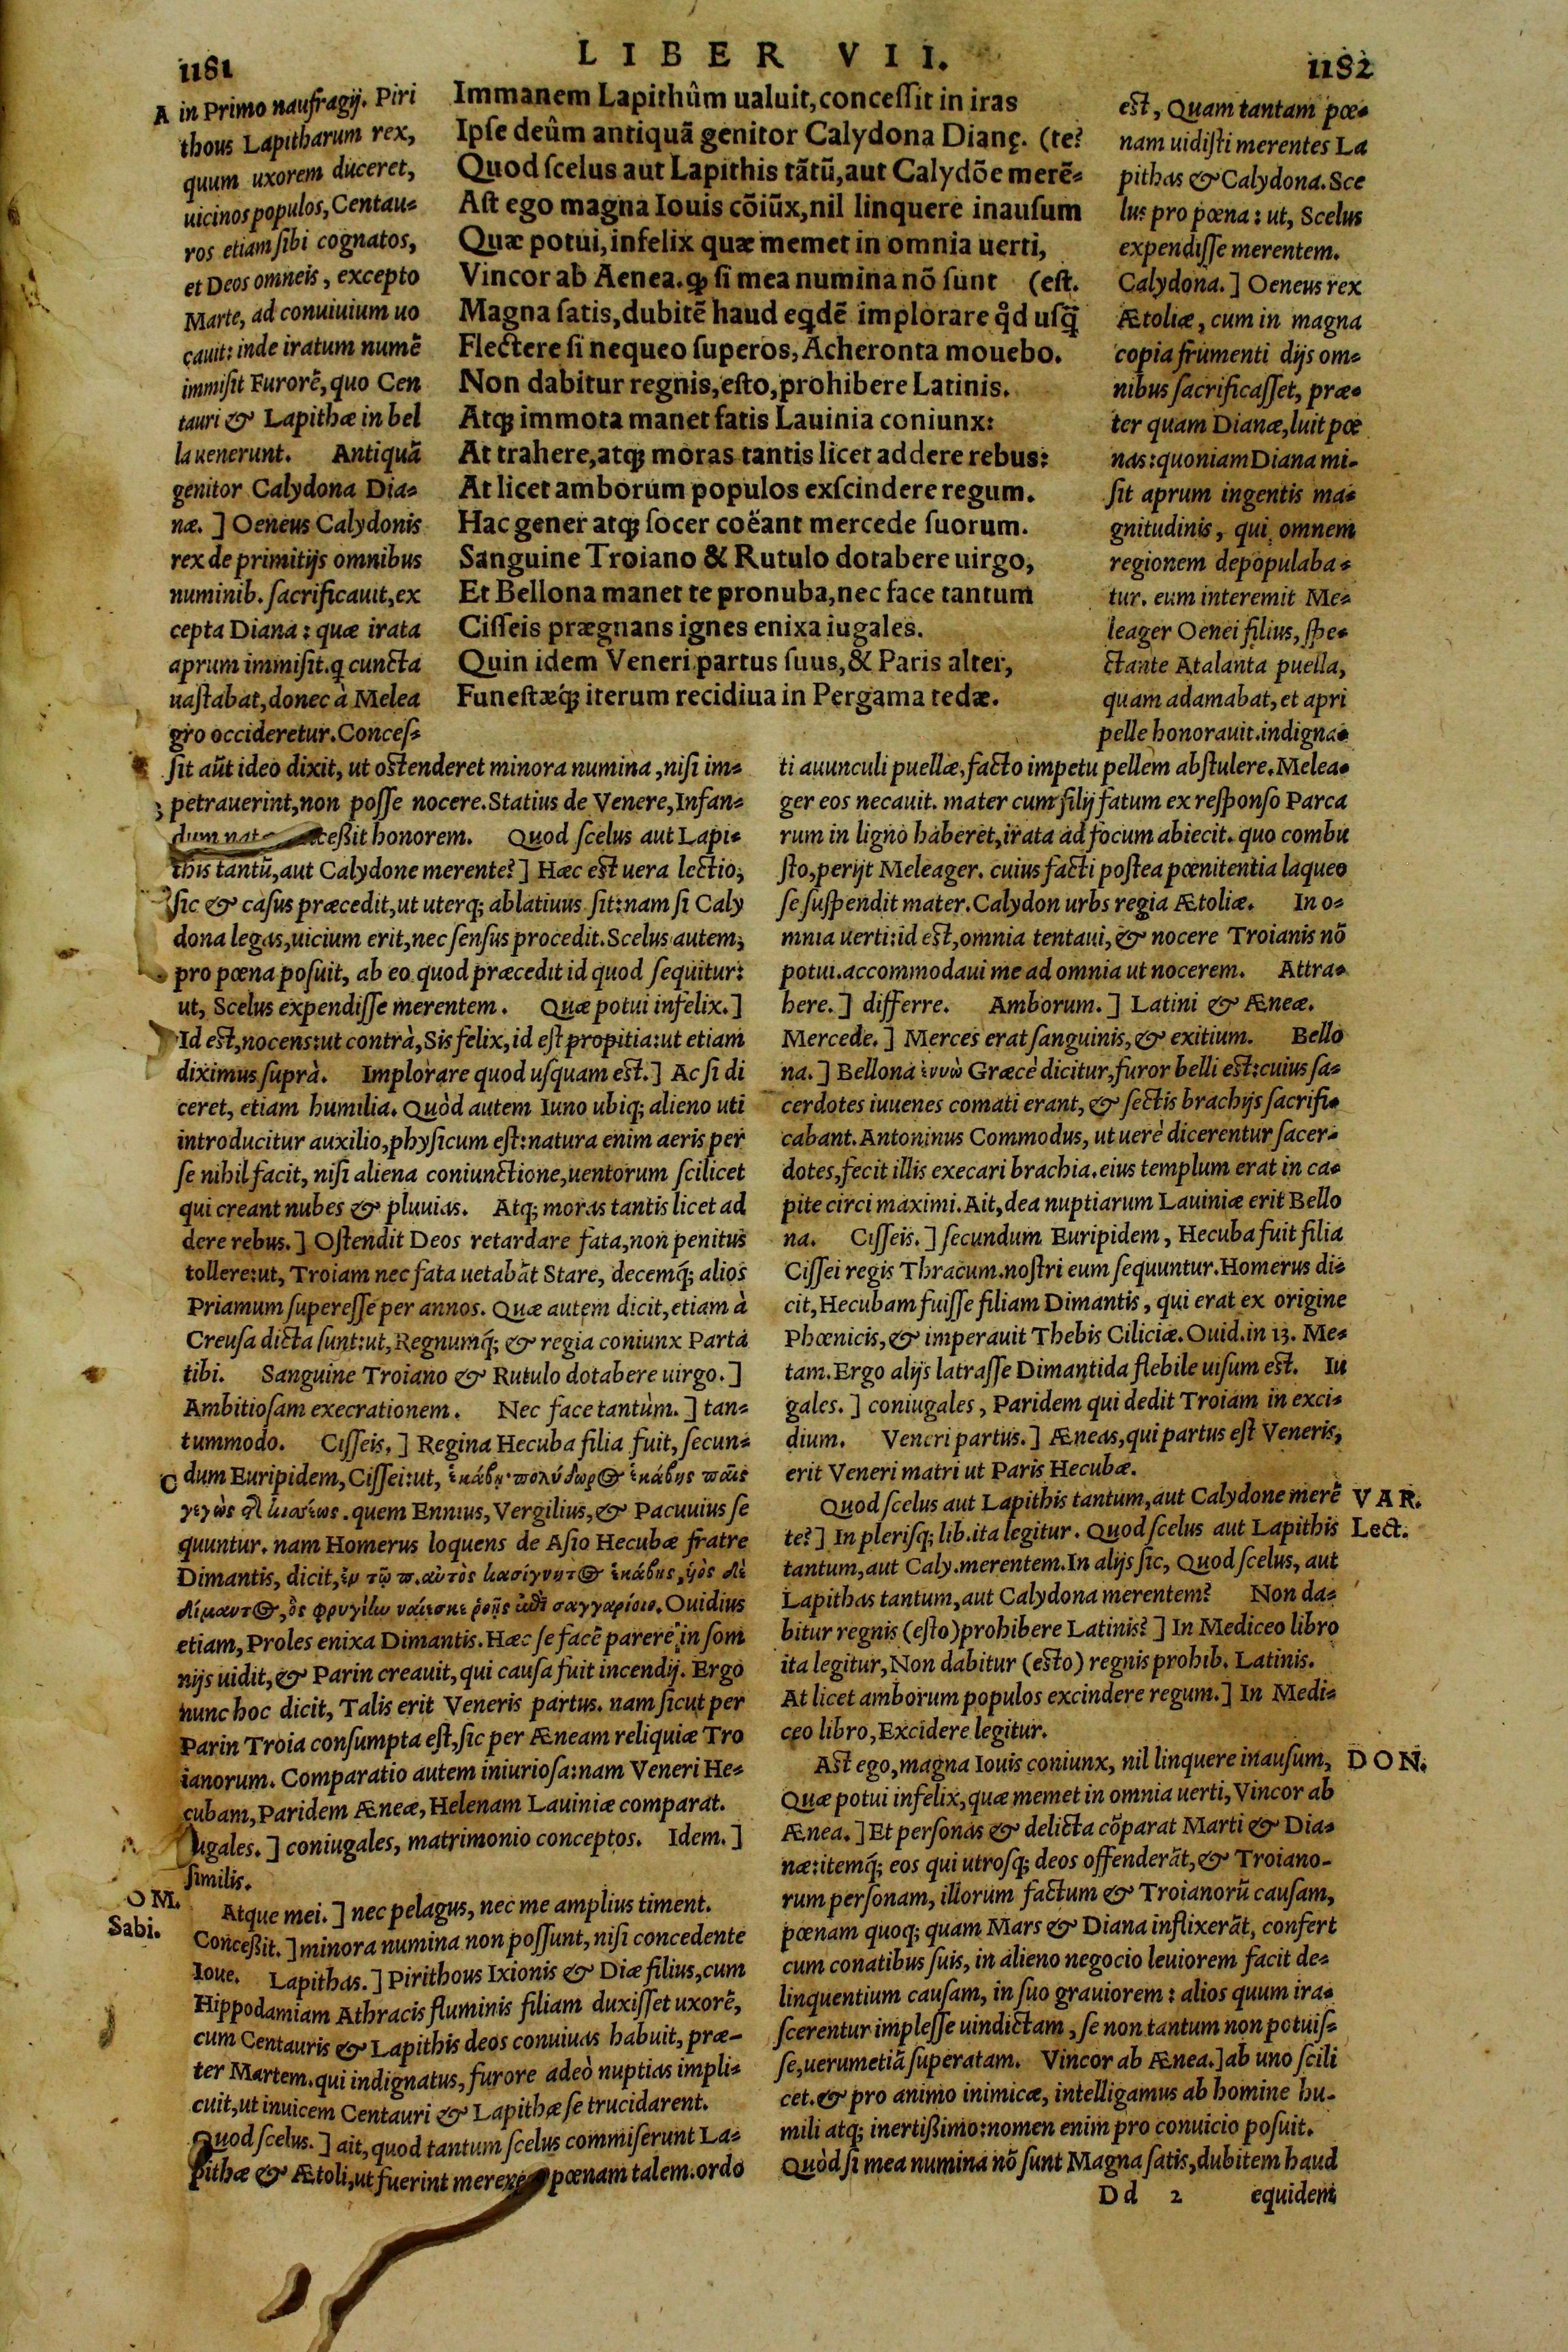 1181
LIBER VII.
1182
Immanem Lapithûm ualuit, concessit in iras
Ipse deûm antiquã genitor Calydona Dianę. (te?
Quod scelus aut Lapithis tãtũ, aut Calydõe merẽ-
Ast ego magna Iouis cõiũx, nil linquere inausum
Quæ potui, infelix quæ memet in omnia uerti,
Vincor ab Aenea. ꝙ si mea numina nõ sunt (est.
Magna satis, dubitẽ haud eq̃dẽ implorare q̊d usq̃
Flectere si nequeo superos, Acheronta mouebo.
Non dabitur regnis, esto, prohibere Latinis.
Atq; immota manet fatis Lauinia coniunx:
At trahere, atq; moras tantis licet addere rebus:
At licet amborum populos exscindere regum.
Hac gener atq; socer coëant mercede suorum.
Sanguine Troiano & Rutulo dotabere uirgo,
Et Bellona manet te pronuba, nec face tantum
Cisseis prægnans ignes enixa iugales.
Quin idem Veneri partus suus, & Paris alter,
Funestæq́; iterum recidiua in Pergama tedæ.
A in Primo naufragij. Piri
thous Lapitharum rex,
quum uxorem duceret,
uicinos populos, Centau-
ros etiam sibi cognatos,
et Deos omneis, excepto
Marte, ad conuiuium uo
cauit: inde iratum numẽ
immisit Furorẽ, quo Cen
tauri & Lapithæ in bel
la uenerunt. Antiquã
genitor Calydona Dia-
næ. ] Oeneus Calydonis
rex de primitijs omnibus
numinib. sacrificauit, ex
cepta Diana: quæ irata
aprum immisit. q cuncta
uastabat, donec à Melea
gro occideretur. Conces-
sit aũt ideo dixit, ut ostenderet minora numina, nisi im-
petrauerint, non posse nocere. Statius de Venere, Infan-
dum ceßit honorem. Quod scelus aut Lapi-
this tantũ, aut Calydone merente? ] Hæc est uera lectio,
sic & casus præcedit, ut uterq; ablatiuus sit: nam si Caly
dona legas, uicium erit, nec sensus procedit. Scelus autem,
pro pœna posuit, ab eo quod præcedit id quod sequitur:
ut, Scelus expendisse merentem. Quæ potui infelix. ]
Id est, nocens: ut contrà, Sis felix, id est propitia: ut etiam
diximus suprà. Implorare quod usquam est. ] Ac si di
ceret, etiam humilia. Quòd autem Iuno ubiq; alieno uti
introducitur auxilio, physicum est: natura enim aeris per
se nihil facit, nisi aliena coniunctione, uentorum scilicet
qui creant nubes & pluuias. Atq; moras tantis licet ad
dere rebus. ] Ostendit Deos retardare fata, non penitus
tollere: ut, Troiam nec fata uetabãt Stare, decemq́; alios
Priamum superesse per annos. Quæ autem dicit, etiam à
Creusa dicta sunt: ut, Regnumq́; & regia coniunx Parta
tibi. Sanguine Troiano & Rutulo dotabere uirgo. ]
Ambitiosam execrationem. Nec face tantùm. ] tan-
tummodo. Cisseis. ] Regina Hecuba filia fuit, secun-
C dum Euripidem, Cissei: ut, ἑκάβη· πολύδωρος ἑκάβης παῖς
γεγὼς τῆς κισσέως. quem Ennius, Vergilius, & Pacuuius se
quuntur. nam Homerus loquens de Asio Hecubæ fratre
Dimantis, dicit, ἐν τῷ π. αὐτὸς κασίγνητος ἑκάβης, ὑὸς δὲ
δίμαντος, ὃς φρυγίῳ ναίεσκε ῥοῇς ἐπὶ σαγγαρίοιο. Ouidius
etiam, Proles enixa Dimantis. Hæc se facẽ parere in som
nijs uidit, & Parin creauit, qui causa fuit incendij. Ergo
nunc hoc dicit, Talis erit Veneris partus. nam sicut per
Parin Troia consumpta est, sic per Æneam reliquiæ Tro
ianorum. Comparatio autem iniuriosa: nam Veneri He-
cubam, Paridem Æneæ, Helenam Lauiniæ comparat.
ugales. ] coniugales, matrimonio conceptos. Idem. ]
similis.
OM.
Sabi.
Atque mei. ] nec pelagus, nec me amplius timent.
Conceßit. ] minora numina non possunt, nisi concedente
Ioue. Lapithas. ] Pirithous Ixionis & Diæ filius, cum
Hippodamiam Athracis fluminis filiam duxisset uxorẽ,
cum Centauris & Lapithis deos conuiuas habuit, præ-
ter Martem. qui indignatus, furore adeò nuptias impli-
cuit, ut inuicem Centauri & Lapithæ se trucidarent.
Quod scelus. ] ait, quod tantum scelus commiserunt La-
pithæ & Ætoli, ut fuerint merere pœnam talem. ordo
est, Quam tantam pœ-
nam uidisti merentes La
pithas & Calydona. Sce
lus pro pœna: ut, Scelus
expendisse merentem.
Calydona. ] Oeneus rex
Ætoliæ, cum in magna
copia frumenti dijs om-
nibus sacrificasset, præ-
ter quam Dianæ, luit pœ
nas: quoniam Diana mi-
sit aprum ingentis ma-
gnitudinis, qui omnem
regionem depopulaba-
tur. eum interemit Me-
leager Oenei filius, spe-
ctante Atalanta puella,
quam adamabat, et apri
pelle honorauit. indigna-
ti auunculi puellæ, facto impetu pellem abstulere. Melea-
ger eos necauit. mater cum filij fatum ex responso Parca
rum in ligno haberet, irata ad focum abiecit. quo combu
sto, perijt Meleager. cuius facti postea pœnitentia laqueo
se suspendit mater. Calydon urbs regia Ætoliæ. In o-
mnia uerti: id est, omnia tentaui, & nocere Troianis nõ
potui. accommodaui me ad omnia ut nocerem. Attra-
here. ] differre. Amborum. ] Latini & Æneæ.
Mercede. ] Merces erat sanguinis, & exitium. Bello
na. ] Bellona ἐνυὼ Græcè dicitur, furor belli est: cuius sa-
cerdotes iuuenes comati erant, & sectis brachijs sacrifi-
cabant. Antoninus Commodus, ut uerè dicerentur sacer-
dotes, fecit illis execari brachia. eius templum erat in ca-
pite circi maximi. Ait, dea nuptiarum Lauiniæ erit Bello
na. Cisseis. ] secundum Euripidem, Hecuba fuit filia
Cissei regis Thracum. nostri eum sequuntur. Homerus di-
cit, Hecubam fuisse filiam Dimantis, qui erat ex origine
Phœnicis, & imperauit Thebis Ciliciæ. Ouid. in 13. Me-
tam. Ergo alijs latrasse Dimantida flebile uisum est. Iu
gales. ] coniugales, Paridem qui dedit Troiam in exci-
dium. Veneri partus. ] Æneas, qui partus est Veneris,
erit Veneri matri ut Paris Hecubæ.
Quod scelus aut Lapithis tantum, aut Calydone merẽ VAR.
te? ] In plerisq; lib. ita legitur. Quod scelus aut Lapithis Lect.
tantum, aut Caly. merentem. In alijs sic, Quod scelus, aut
Lapithas tantum, aut Calydona merentem? Non da-
bitur regnis (esto) prohibere Latinis? ] In Mediceo libro
ita legitur, Non dabitur (esto) regnis prohib. Latinis.
At licet amborum populos excindere regum. ] In Medi-
ceo libro, Excidere legitur.
Ast ego, magna Iouis coniunx, nil linquere inausum, DON.
Quæ potui infelix, quæ memet in omnia uerti, Vincor ab
Ænea. ] Et personas & delicta cõparat Marti & Dia-
næ: itemq́; eos qui utrosq; deos offenderãt, & Troiano-
rum personam, illorum factum & Troianorũ causam,
pœnam quoq; quam Mars & Diana inflixerãt, confert
cum conatibus suis, in alieno negocio leuiorem facit de-
linquentium causam, in suo grauiorem: alios quum ira-
scerentur implesse uindictam, se non tantum non potuis-
se, uerumetiã superatam. Vincor ab Ænea. ] ab uno scili
cet. & pro animo inimicæ, intelligamus ab homine hu-
mili atq; inertißimo: nomen enim pro conuicio posuit.
Quòd si mea numina nõ sunt Magna satis, dubitem haud
Dd 2 equidem